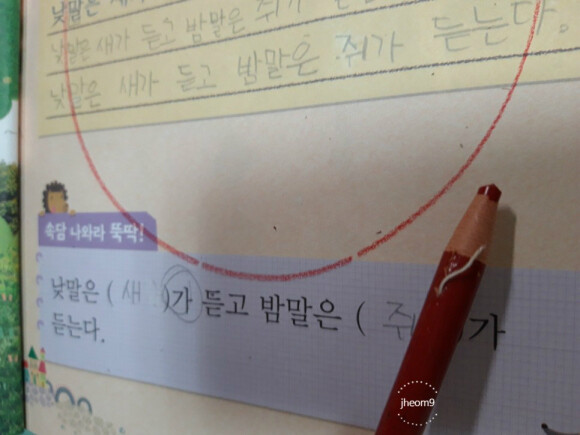 낮말은 새가 듣고 밤말은 쥐가
낮말은 새가 듣고 밤말은 쥐가 듣는다.
낮말은 새가 듣고 밤말은 쥐가 듣는다.
속담 나와라 뚝딱!
낮말은 ( 새 )가 듣고 밤말은 ( 쥐 )가
듣는다.
jheom9